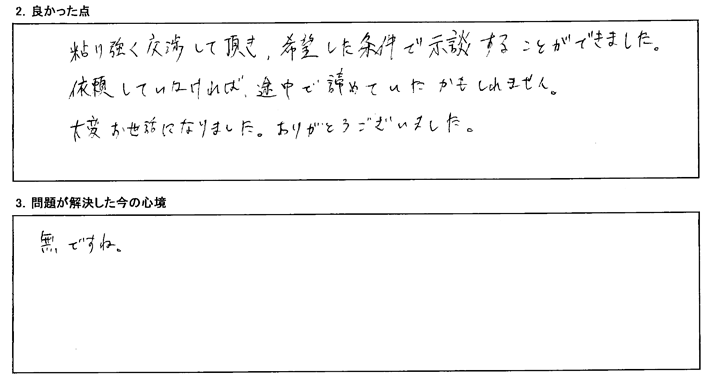 2. 良かった点
粘り強く交渉して頂き、希望した条件で示談することができました。
依頼していなければ、途中で諦めていたかもしれません。
大変お世話になりました。ありがとうございました。
3. 問題が解決した今の心境
無ですね。